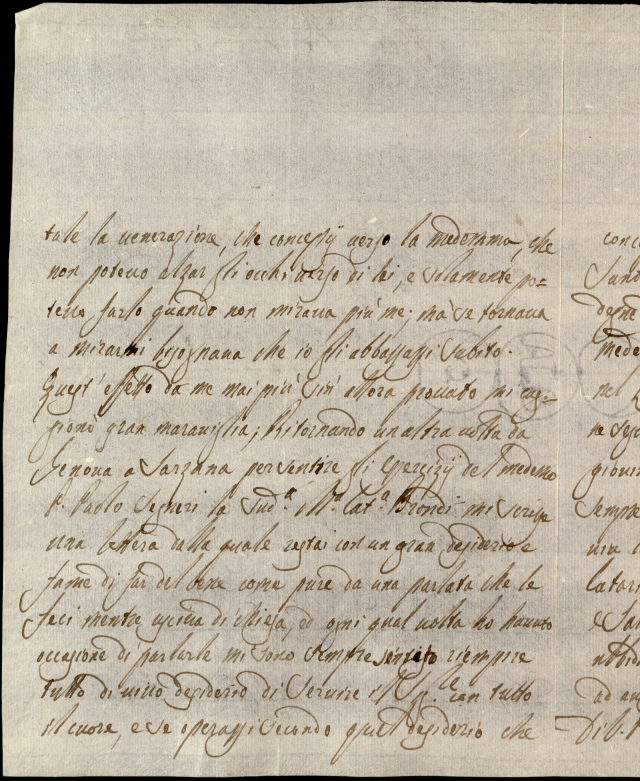 tale la venerazione, che concepij verso la medesima, che
non potevo alzar gli occhi verso di lei, e solamente po=
tevo farlo quando non mirava più me; mà se tornava
a mirarmi bisognava che io gli abbassassi subito.
Quest'effetto da me mai più sin' allora provato mi ca=
gionò gran maraviglia; Ritornando un altra volta da
Genova a Sarzana per sentire gli esercizij del medemo
P. Paolo Segneri la Sud.a M.a Cat.a Brondi mi scrisse
una lettera dalla quale restai con un gran desiderio e
fame di far del bene come pure da una parlata che le
feci mentre usciva di Chiesa, ed ogni qual volta ho havuto
occasione di parlarle mi sono sempre sentito riempire
tutto di vivo desiderio di servire il Sig.re con tutto
il cuore, e se operassi secondo quel desiderio che